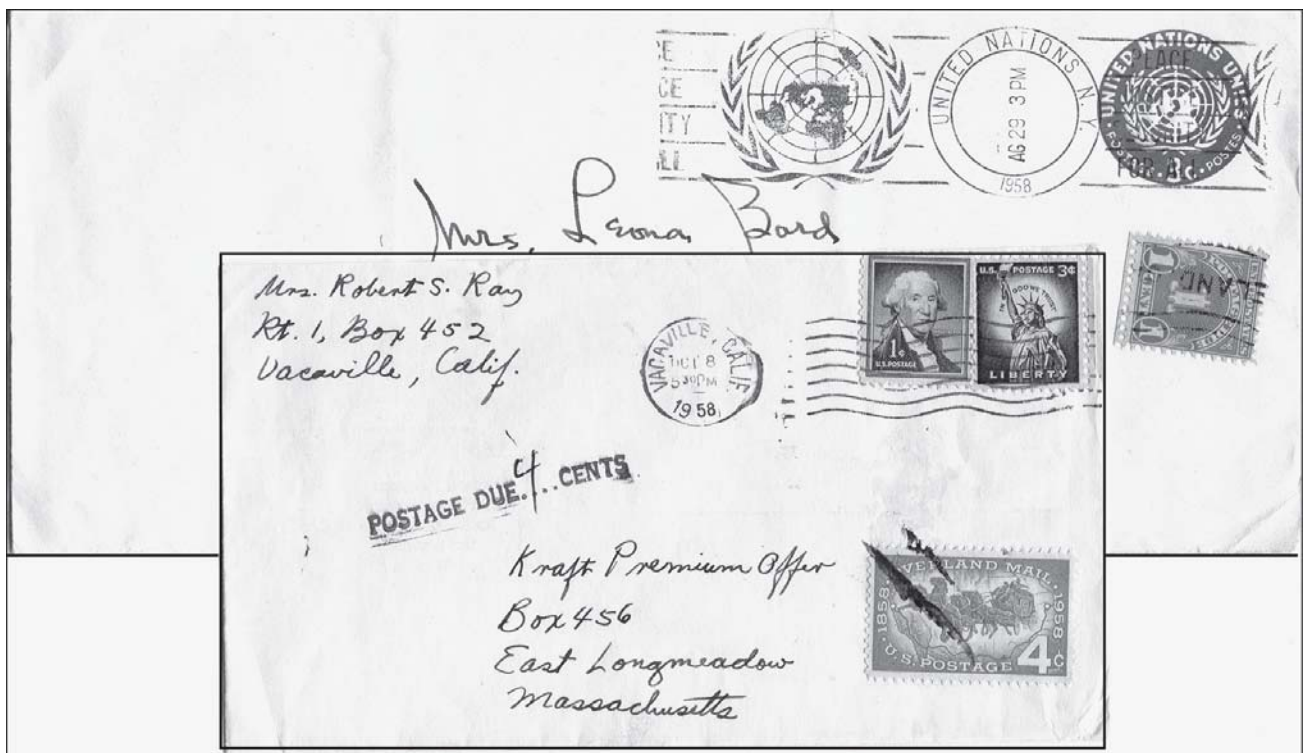 CE
ITY
ALL
UNITED NATIONS N.Y.
AG 29 3 PM
1958
UNITED NATIONS UNIES
PEACE
FOR ALL
POSTAGE 3c POSTES
Mrs. Leona Bard
1
LAND
1
Mrs. Robert S. Ray
Rt. 1, Box 452
Vacaville, Calif.
VACAVILLE, CALIF.
OCT 8
5 30 PM
1958
1¢
U.S. POSTAGE
U.S. POSTAGE 3¢
IN GOD WE TRUST
LIBERTY
POSTAGE DUE 4 CENTS
Kraft Premium Offer
Box 456
East Longmeadow
Massachusetts
OVERLAND MAIL
1858
1958
U.S. POSTAGE 4¢